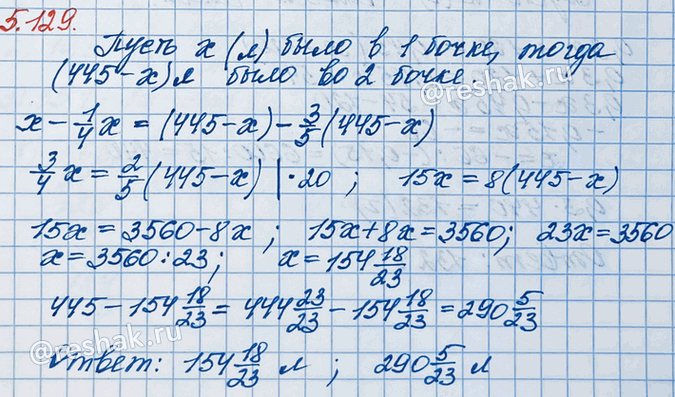 5.129.
Пусть x (л) было в 1 бочке, тогда
(445-x) л было во 2 бочке.
x - 1/4 x = (445-x) - 3/5 (445-x)
3/4 x = 2/5 (445-x) | ·20 ; 15x = 8(445-x)
15x = 3560-8x ; 15x+8x=3560; 23x=3560
x=3560:23; x=154 18/23
445-154 18/23 = 444 23/23 - 154 18/23 = 290 5/23
Ответ: 154 18/23 л ; 290 5/23 л
©reshak.ru
©reshak.ru
©reshak.ru
©reshak.ru